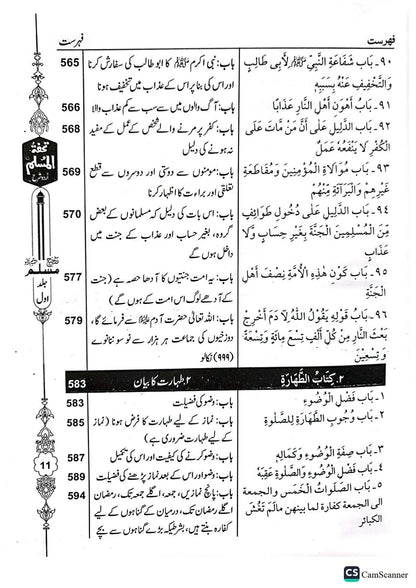 فہرست
فهرست
٩٠- بَاب شَفَاعَةِ النَّبِيِّ ﷺ لِأَبِي طَالِبٍ
وَالتَّخْفِيفِ عَنْهُ بِسَبَبِهِ
باب: نبی اکرم ﷺ کا ابو طالب کی سفارش کرنا
اور اس کی بنا پر اس کے عذاب میں تخفیف ہونا
565
٩١- بَاب أَهْوَنِ أَهْلِ النَّارِ عَذَابًا
باب: آگ والوں میں سے سب سے کم عذاب والا
566
٩٢- بَاب الدَّلِيلِ عَلَى أَنَّ مَنْ مَاتَ عَلَى
الْكُفْرِ لَا يَنْفَعُهُ عَمَلٌ
باب: کفر پر مرنے والے شخص کے عمل کے مفید
نہ ہونے کی دلیل
568
٩٣- بَاب مُوَالَاةِ الْمُؤْمِنِينَ وَمُقَاطَعَةِ
غَيْرِهِمْ وَالْبَرَاءَةِ مِنْهُمْ
باب: مومنوں سے دوستی اور دوسروں سے قطع
تعلقی اور براءت کا اظہار کرنا
569
٩٤- بَاب الدَّلِيلِ عَلَى دُخُولِ طَوَائِفَ
مِنَ الْمُسْلِمِينَ الْجَنَّةَ بِغَيْرِ حِسَابٍ وَلَا
عَذَابٍ
باب: اس بات کی دلیل کہ مسلمانوں کے بعض
گروہ، بغیر حساب اور عذاب کے جنت میں
داخل ہوں گے
570
٩٥- بَاب كَوْنِ هَذِهِ الْأُمَّةِ نِصْفَ أَهْلِ
الْجَنَّةِ
باب: یہ امت جنتیوں کا آدھا حصہ ہے (جنت
کے آدھے لوگ اس امت کے ہوں گے)
577
٩٦- بَاب قَوْلِهِ يَقُولُ اللَّهُ لِآدَمَ أَخْرِجْ
بَعْثَ النَّارِ مِنْ كُلِّ أَلْفٍ تِسْعَ مِائَةٍ وَتِسْعَةً
وَتِسْعِينَ
باب: اللہ تعالی حضرت آدم سے فرمائے گا،
دوزخیوں کی جماعت ہر ہزار سے نو سو ننانوے
(۹۹۹) نکالو
579
٢- كِتَابُ الطَّهَارَةِ
۲۔ طہارت کا بیان
583
١- بَاب فَضْلِ الْوُضُوءِ
باب: وضو کی فضیلت
583
٢- بَاب وُجُوبِ الطَّهَارَةِ لِلصَّلَاةِ
باب: نماز کے لیے طہارت کا فرض ہونا (نماز
کے لیے طہارت ضروری ہے)
585
٣- بَاب صِفَةِ الْوُضُوءِ وَكَمَالِهِ
باب: وضو کرنے کی کیفیت اور اس کی تکمیل
587
٤- بَاب فَضْلِ الْوُضُوءِ وَالصَّلَاةِ عَقِبَهُ
باب: وضو اور اس کے بعد نماز پڑھنے کی فضیلت
589
٥- باب الصلوات الخمس والجمعة
الى الجمعة كفارة لما بينهن مالم تغش
الكبائر
باب: پانچ نمازیں، جمعہ، اگلے جمعہ تک، رمضان،
اگلے رمضان تک، درمیان کے گناہوں کے لیے
کفارہ بنتے ہیں، بشرطیکہ بڑے گناہوں سے بچے
594
تحفة
المسلم
مسلم
جلد
اول
11
CS CamScanner